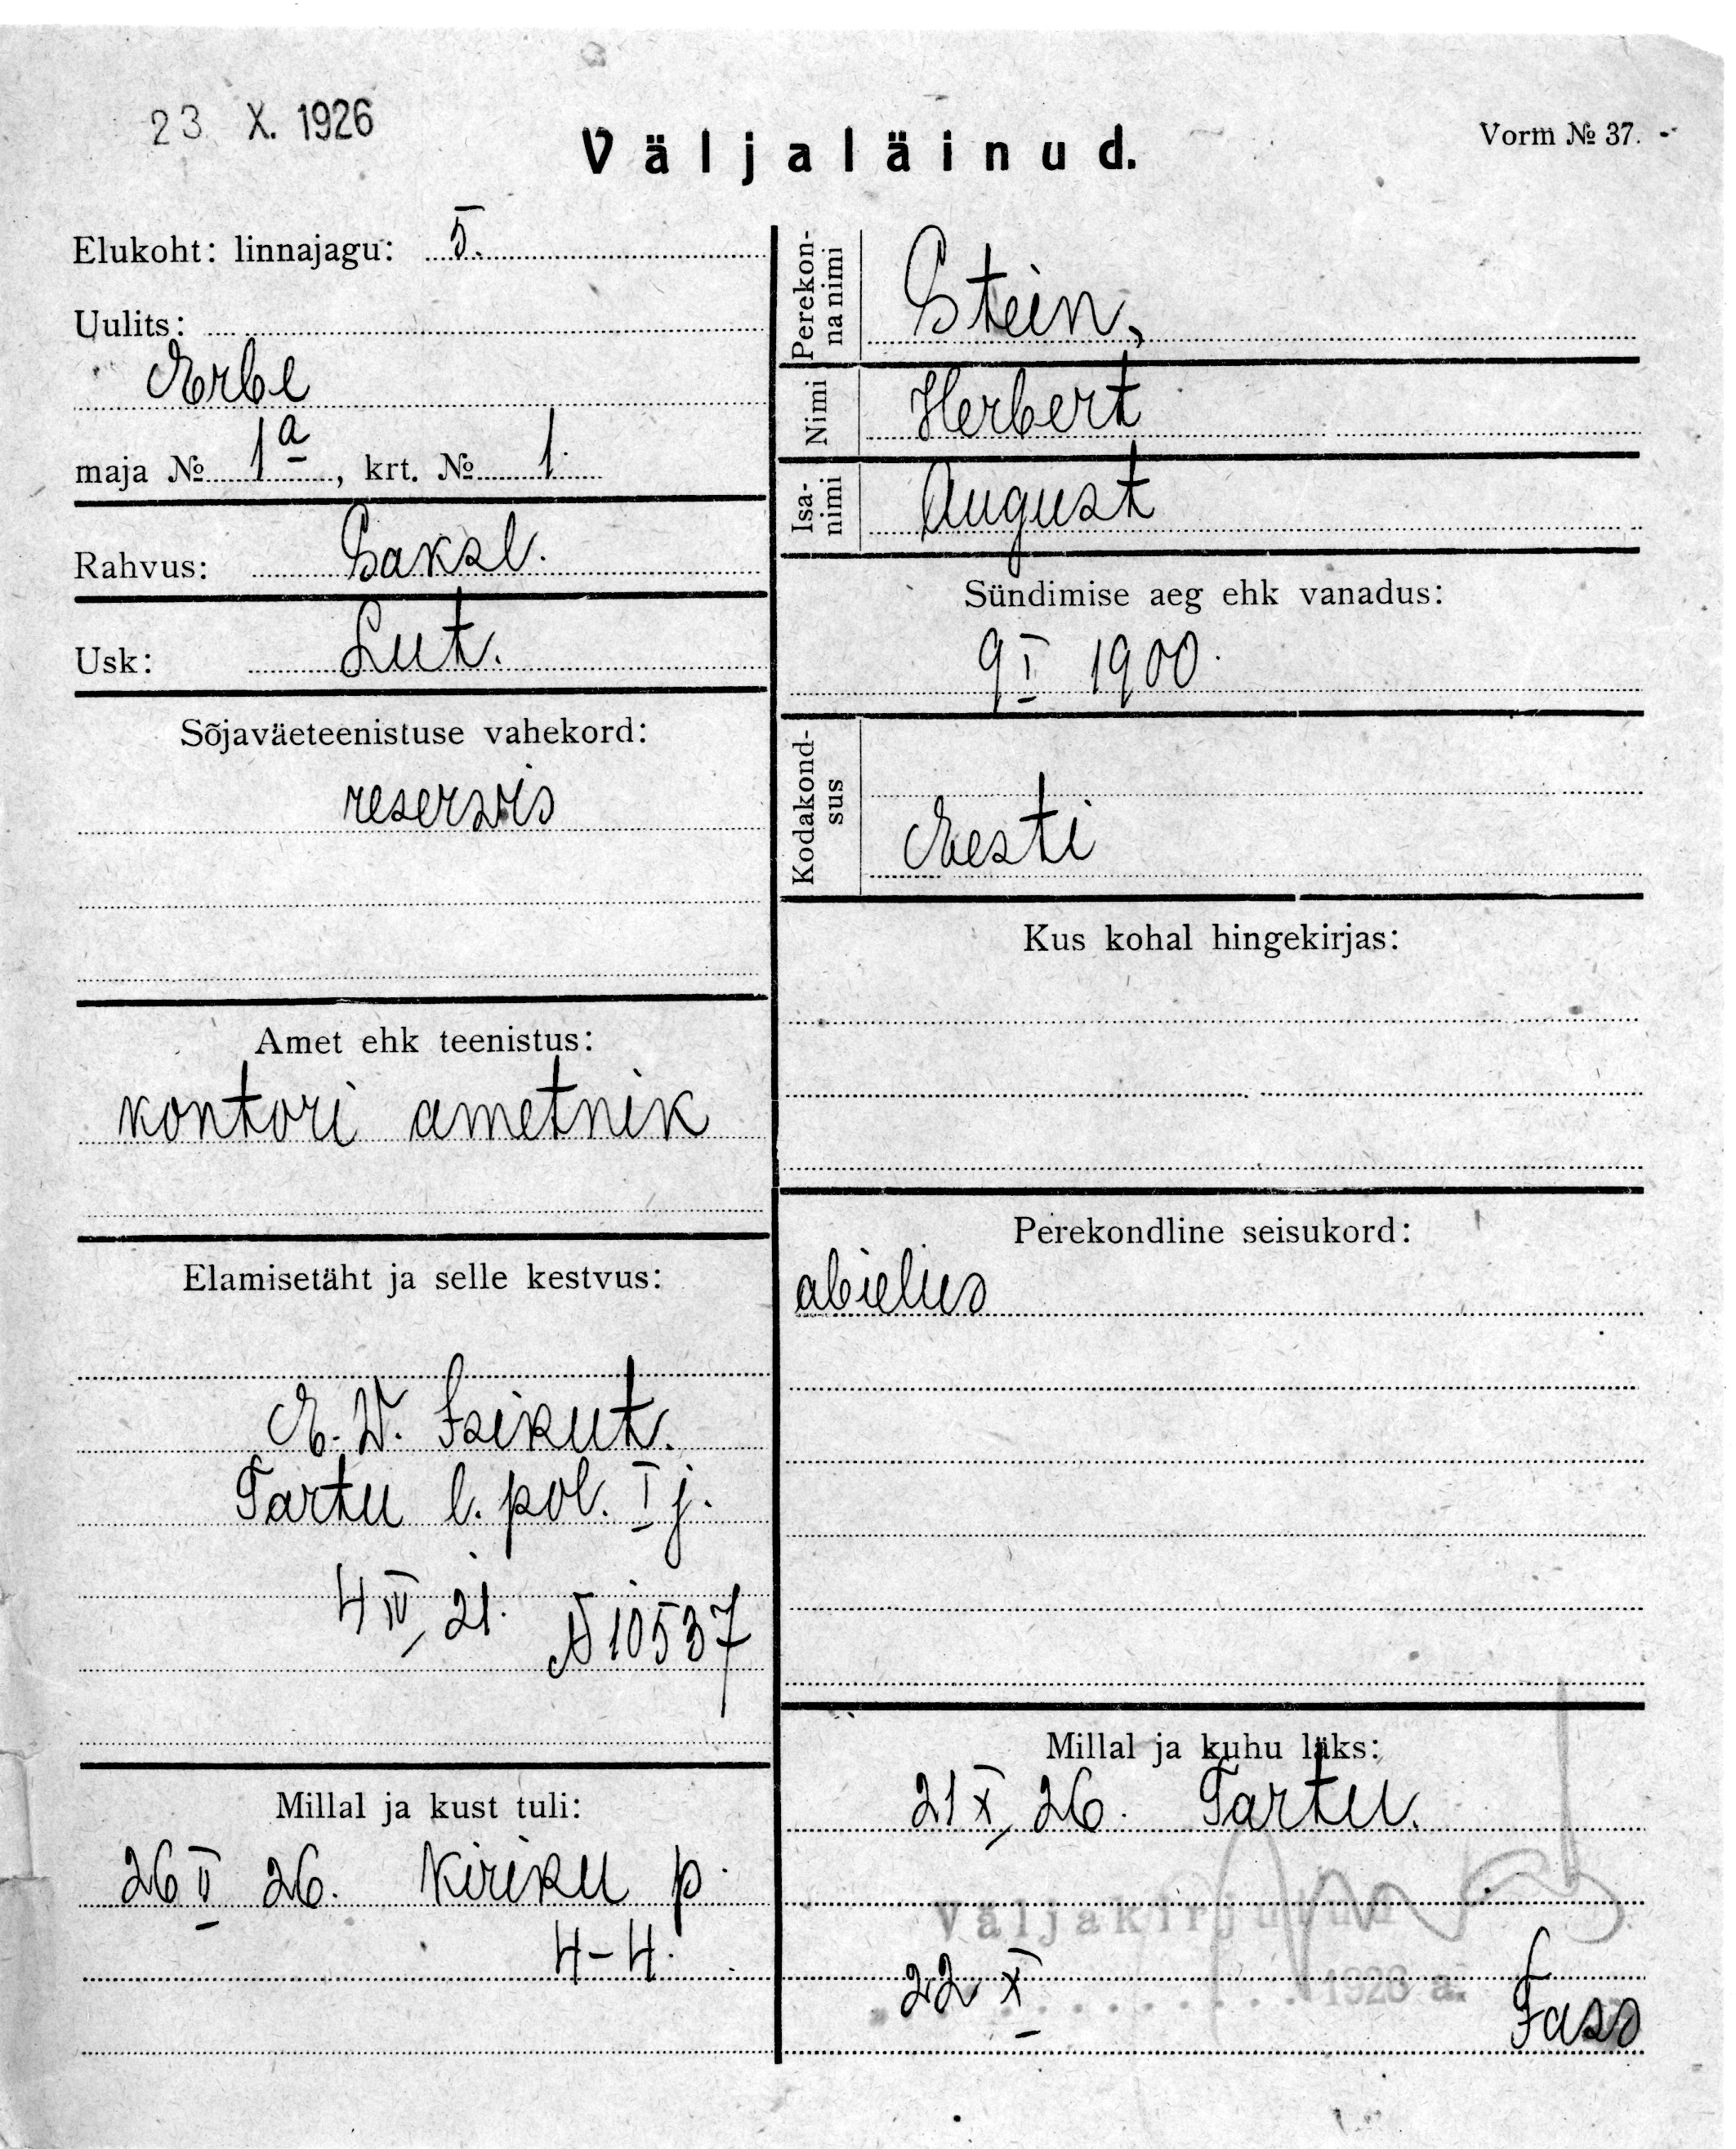 23 X. 1926
Väljaläinud.
Vorm № 37.
Elukoht: linnajagu: 5.
Uulits:
Erbe
maja № 1a, krt. № 1.
Rahvus: Saksl.
Usk: Lut.
Sõjaväeteenistuse vahekord:
reserwis
Amet ehk teenistus:
kontori ametnik
Elamisetäht ja selle kestvus:
E. W. Isikut.
Tartu l. pol. I j.
4 IV 21. N 10537
Millal ja kust tuli:
26 II 26. Kiriku p.
4-4.
Perekon-
na nimi
Stein,
Nimi
Herbert
Isa-
nimi
August
Sündimise aeg ehk vanadus:
9 I 1900.
Kodakond-
sus
Eesti
Kus kohal hingekirjas:
Perekondline seisukord:
abielus
Millal ja kuhu läks:
21 X 26. Tartu.
Väljakirjutatud
22 X 1926 a.